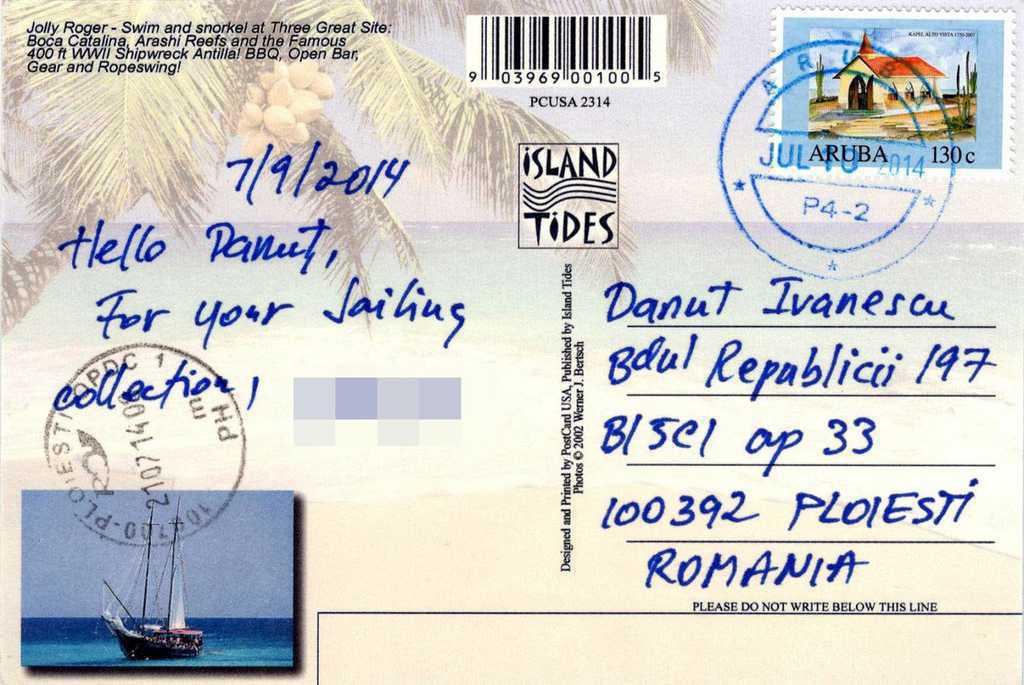 Jolly Roger - Swim and snorkel at Three Great Site:
Boca Catalina, Arashi Reefs and the Famous
400 ft WWII Shipwreck Antilla! BBQ, Open Bar,
Gear and Ropeswing!
9 03969 00100 5
PCUSA 2314
KAPEL ALTO VISTA 1750-2001
ARUBA 130 c
ARUBA
JUL 10 2014
P4-2
ISLAND
TIDES
7/9/2014
Hello Danuţ,
For your Sailing
collection,
Designed and Printed by PostCard USA, Published by Island Tides
Photos © 2002 Werner J. Bertsch
Danut Ivanescu
Bdul Republicii 197
Bl 5C1 ap 33
100392 PLOIESTI
ROMANIA
PLEASE DO NOT WRITE BELOW THIS LINE